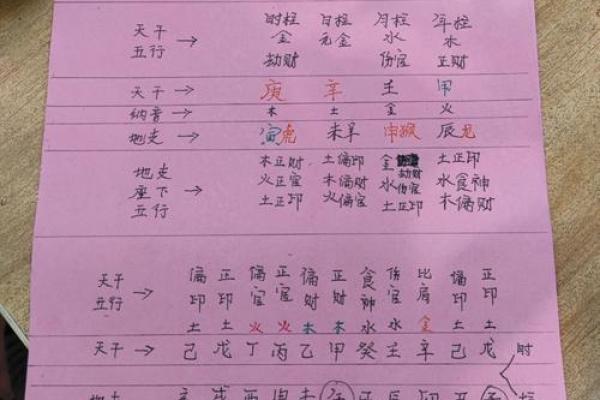 时柱 日柱 月柱 年柱
天干 五行 → 金 元金 水 水
劫财 伤官 正财
天干 → 庚 辛 壬 甲
纳音 → 木 土 金 火
地支 → 寅虎 未羊 申猴 辰龙
地支 座下 五行 →
木正财 土偏印 金劫财 土正印
火正官 木偏财 水伤官 水食神
土正印 火偏官 土正印 木偏财
天干 五行 → 偏印 正印 偏官 正官 偏财 正财 食神 伤官 比肩 偏印 正印
土 土 火 火 木 木 水 水 金 土 土
天干 → 己 戊 丁 丙 乙 甲 癸 壬 辛 己 戊 时